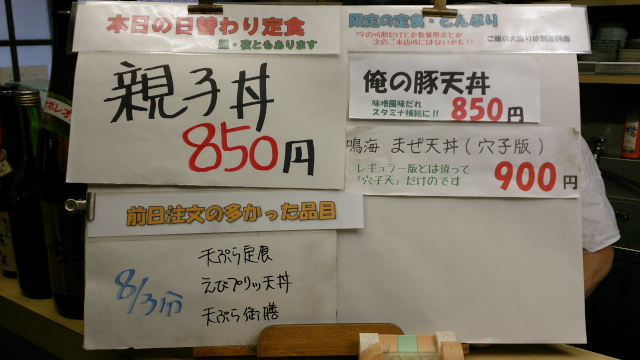 本日の日替わり定食
昼・夜ともあります
親子丼
850円
前日注文の多かった品目
8/31分
天ぷら定食
えびプリッ天丼
天ぷら御膳
限定の定食・どんぶり
*今の時期だけとか数量限定とか
次のご来店時にはないかも?!
ご飯の大盛りは別途料金
俺の豚天丼
味噌風味だれ
スタミナ補給に!!
850円
鳴海 まぜ天丼(穴子版)
レギュラー版とは違って
「穴子天」だけのです
900円